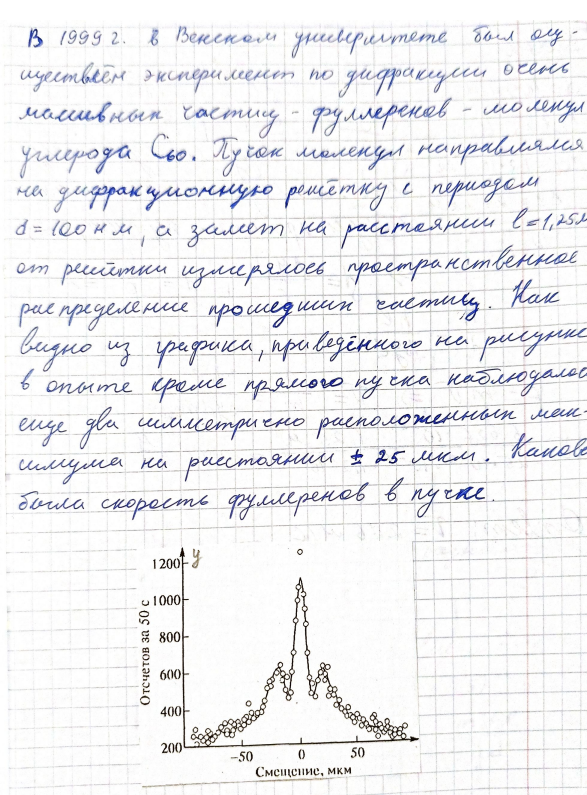 В 1999 г. в Венском университете был осу-
ществлён эксперимент по дифракции очень
массивных частиц - фуллеренов - молекул
углерода C60. Пучок молекул направлялся
на дифракционную решётку с периодом
d = 100 нм, а затем на расстоянии l = 1,25м
от решётки измерялось пространственное
распределение прошедших частиц. Как
видно из графика, приведённого на рисунке
в опыте кроме прямого пучка наблюдалос
еще два симметрично расположенных мак-
симума на расстоянии ± 25 мкм. Какова
была скорость фуллеренов в пучке.
y
1200
1000
800
600
400
200
Отсчетов за 50 с
-50 0 50
Смещение, мкм